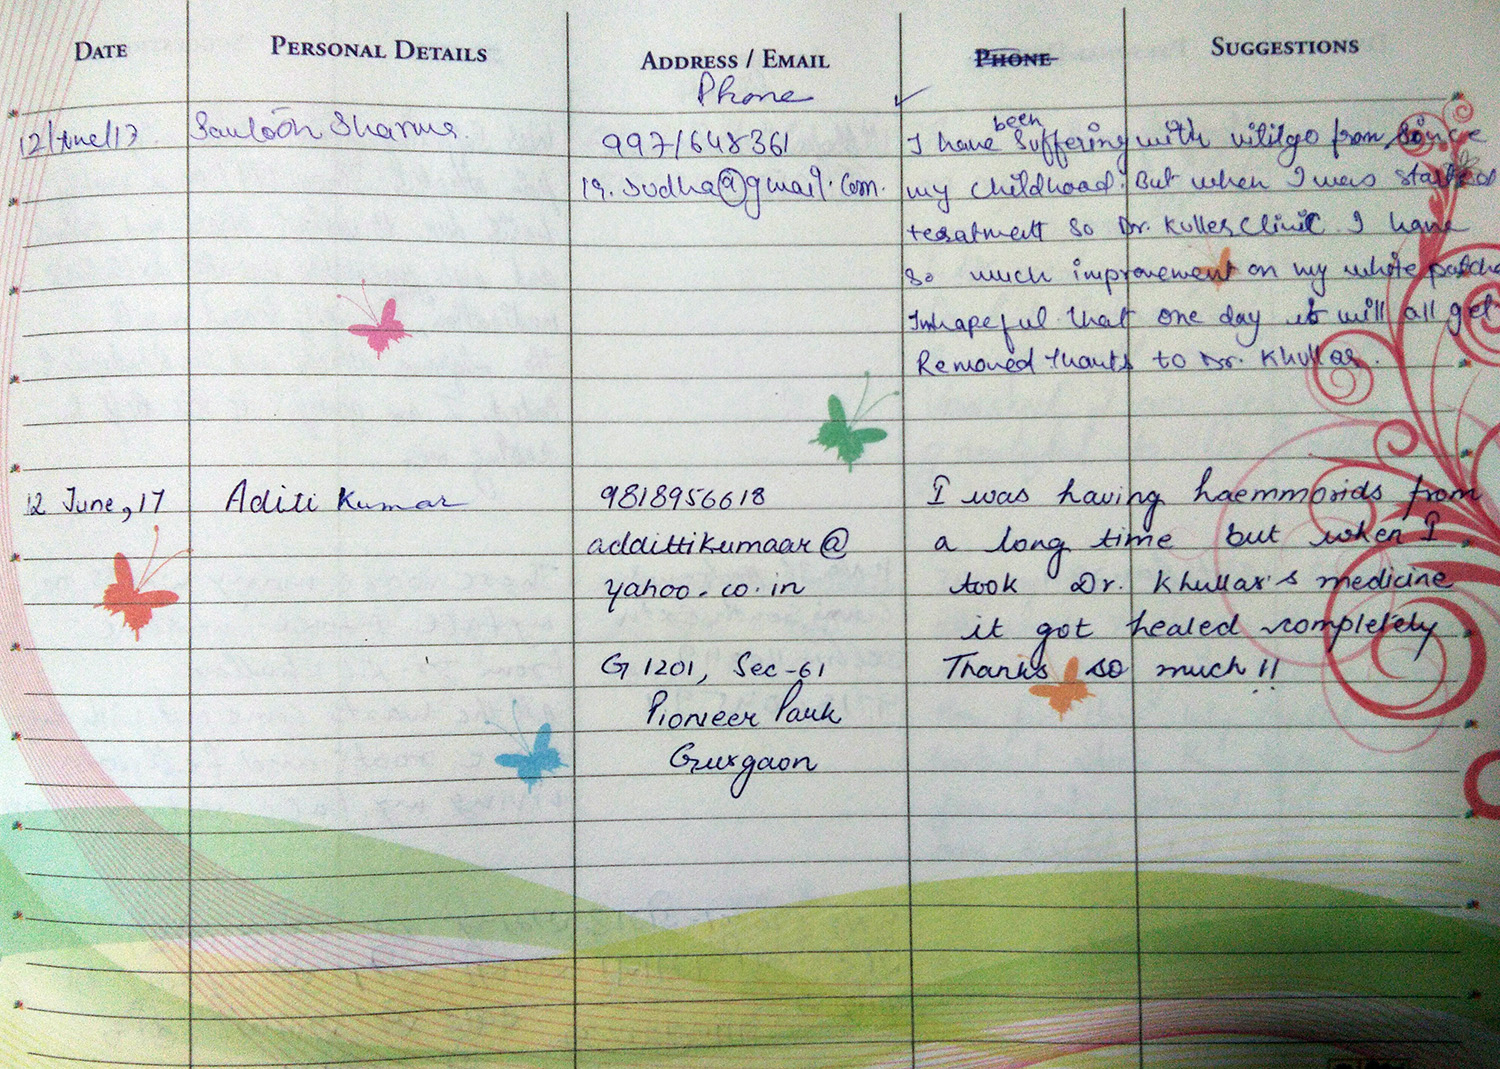 DATE
PERSONAL DETAILS
ADDRESS / EMAIL
PHONE
SUGGESTIONS
Phone
12/June/17
Sharma
9971648361
19.sudha@gmail.com.
I have been suffering with vitilgo from since
my childhood. But when I was started
treatment so Dr. Kuller Clinic. I have
so much improvement on my white patche
Imhopeful that one day it will all get
Removed thanks to Dr. Khullar.
12 June, 17
Aditi Kumar
9818956618
addittikumaar@
yahoo.co.in
G 1201, Sec-61
Pioneer Park
Gurgaon
I was having haemmorids from
a long time but when I
took Dr. Khullar's medicine
it got healed completely
Thanks so much !!